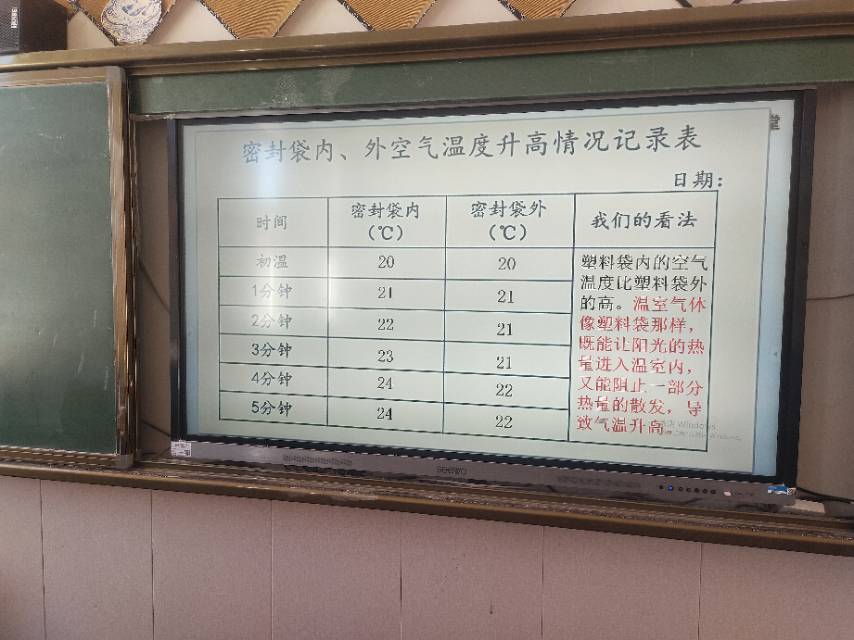 密封袋内、外空气温度升高情况记录表
日期：
时间 密封袋内（℃） 密封袋外（℃） 我们的看法
初温 20 20
1分钟 21 21
2分钟 22 21
3分钟 23 21
4分钟 24 22
5分钟 24 22
塑料袋内的空气
温度比塑料袋外
的高。温室气体
像塑料袋那样，
既能让阳光的热
量进入温室内，
又能阻止一部分
热量的散发，导
致气温升高。
Windows
SEEWO